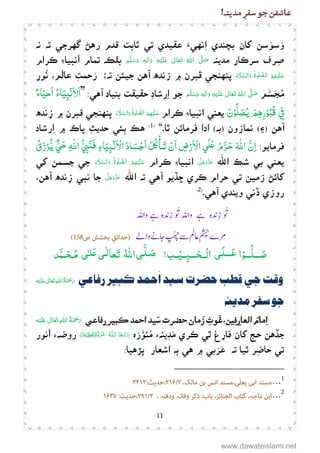 عاشقن جو سفرِ مدينه!
وَسوَسن کان بچندي اِنهيءَ عقيدي تي ثابِت قدم رهڻ گهرجي ته نه
صِرف سرڪارِ مدينه صَلَّى اللهُ تَعَالٰى عَلَيْهِ وَاٰلِهٖ وَسَلَّم بلڪ تمام انبياءِ ڪرام
عَلَيْهِمُ الصَّلٰوةُ وَالسَّلَام پنهنجي قبرن ۾ زنده آهن جيئن ته: رَحمتِ عالَم، نُورِ
مُجَسَّم صَلَّى اللهُ تَعَالٰى عَلَيْهِ وَاٰلِهٖ وَسَلَّم جو ارشادِ حقيقت بنياد آهي: ”اَلْاَنْبِيَاءُ اَحْيَاءٌ
فِيْ قُبُوْرِهِمْ يُصَلُّوْنَ يعني انبياءِ ڪرام عَلَيْهِمُ الصَّلٰوةُ وَالسَّلَام پنهنجي قبرن ۾ زنده
آهن (۽) نمازون (به) ادا فرمائن ٿا.“ (1) هڪ ٻئي حديثِ پاڪ ۾ اِرشاد
فرمايو: اِنَّ اللهَ حَرَّمَ عَلَى الْاَرْضِ اَنْ تَأْكُلَ اَجْسَادَ الْاَنْبِيَاءِ فَنَبِيُّ اللهِ حَيٌّ يُرْزَقُ
يعني بي شڪ الله عَزَّوَجَلَّ انبياءِ ڪرام عَلَيْهِمُ الصَّلٰوةُ وَالسَّلَام جي جسمن کي
کائڻ زمين تي حرام ڪري ڇڏيو آهي ته الله عَزَّوَجَلَّ جا نبي زنده آهن،
روزي ڏني ويندي آهي. (2)
تُو زندہ ہے واللہ تُو زندہ ہے واللہ
مرے چشمِ عالم سے چھپ جانے والے (حدائقِ بخشش ص158)
صَلُّوْا عَلَى الْحَبِيْب! صَلَّى اللهُ تَعَالٰى عَلٰى مُحَمَّد
وقت جي قطب حضرت سيد أحمد ڪبير رفاعي رَحْمَةُ اللهِ تَعَالٰى عَلَيْه
جو سفرِ مدينه
اِمامُ العارِفين، غوثِ زَمان حضرت سيّد اَحمد ڪبير رِفاعي رَحْمَةُ اللهِ تَعَالٰى عَلَيْه
جڏهن حج کان فارغ ٿي ڪري مَدِينه مُنَوَّرَه زَادَهَا اللهُ شَرَفًا وَّتَعْظِيْمًا روضه أنور
تي حاضِر ٿيا ته عَرَبي ۾ هي ٻه اشعار پڙهيا:
1...مسند ابی یعلٰی، مسند انس بن مالک، ۳/۲۱۶، حدیث: ۳۴۱۲
2...ابن ماجه، کتاب الجنائز، باب: ذکر وفاته ودفنه، ۲/۲۹۱، حدیث: ۱۶۳۷
11
www.dawateislami.net